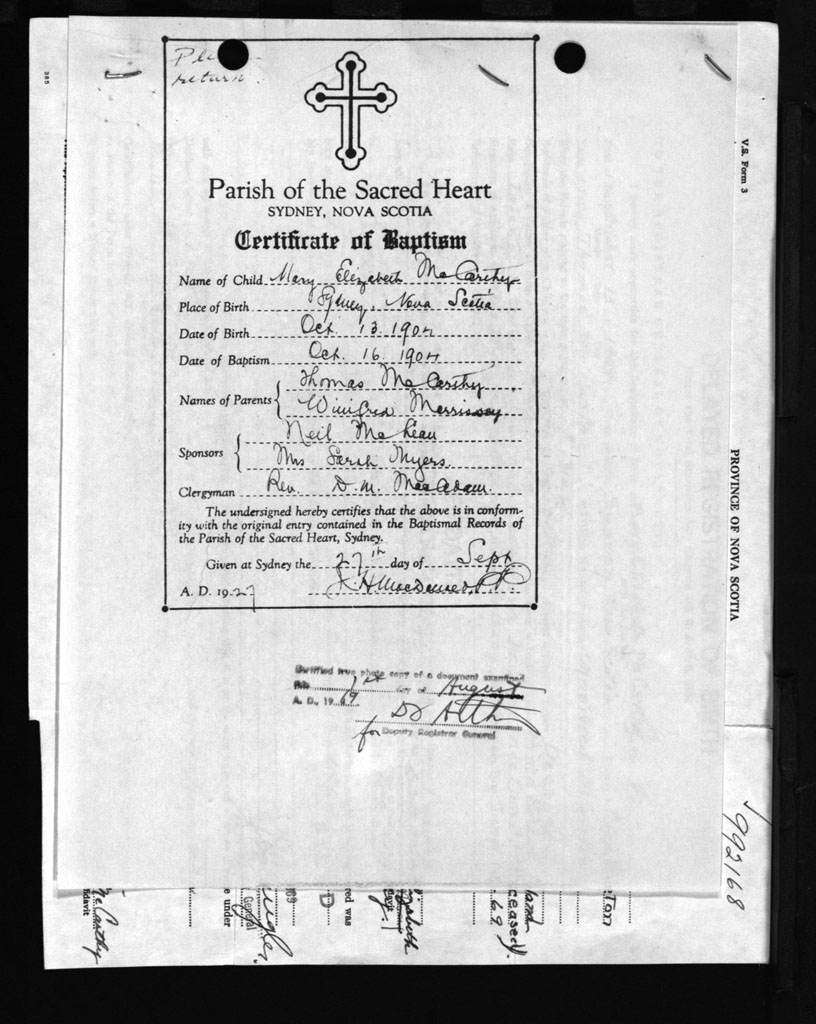 return
Parish of the Sacred Heart
SYDNEY, NOVA SCOTIA
Certificate of Baptism
Name of Child Mary Elizabeth McCarthy
Place of Birth Sydney, Nova Scotia
Date of Birth Oct. 13 1904
Date of Baptism Oct. 16 1904
Names of Parents Thomas McCarthy
Winifred Morrissey
Sponsors Neil McLean
Mrs Sarah Myers
Clergyman Rev. D. M. MacAdam.
The undersigned hereby certifies that the above is in conform-
ity with the original entry contained in the Baptismal Records of
the Parish of the Sacred Heart, Sydney.
Given at Sydney the 27th day of Sept
A. D. 1927
Certified true photo copy of a document examined
1st day of August
A. D., 19
for Deputy Registrar General
385
V.S. Form 3
PROVINCE OF NOVA SCOTIA
992168
McCarthy
fidavit
e under
General
D
red was
ceased).
69